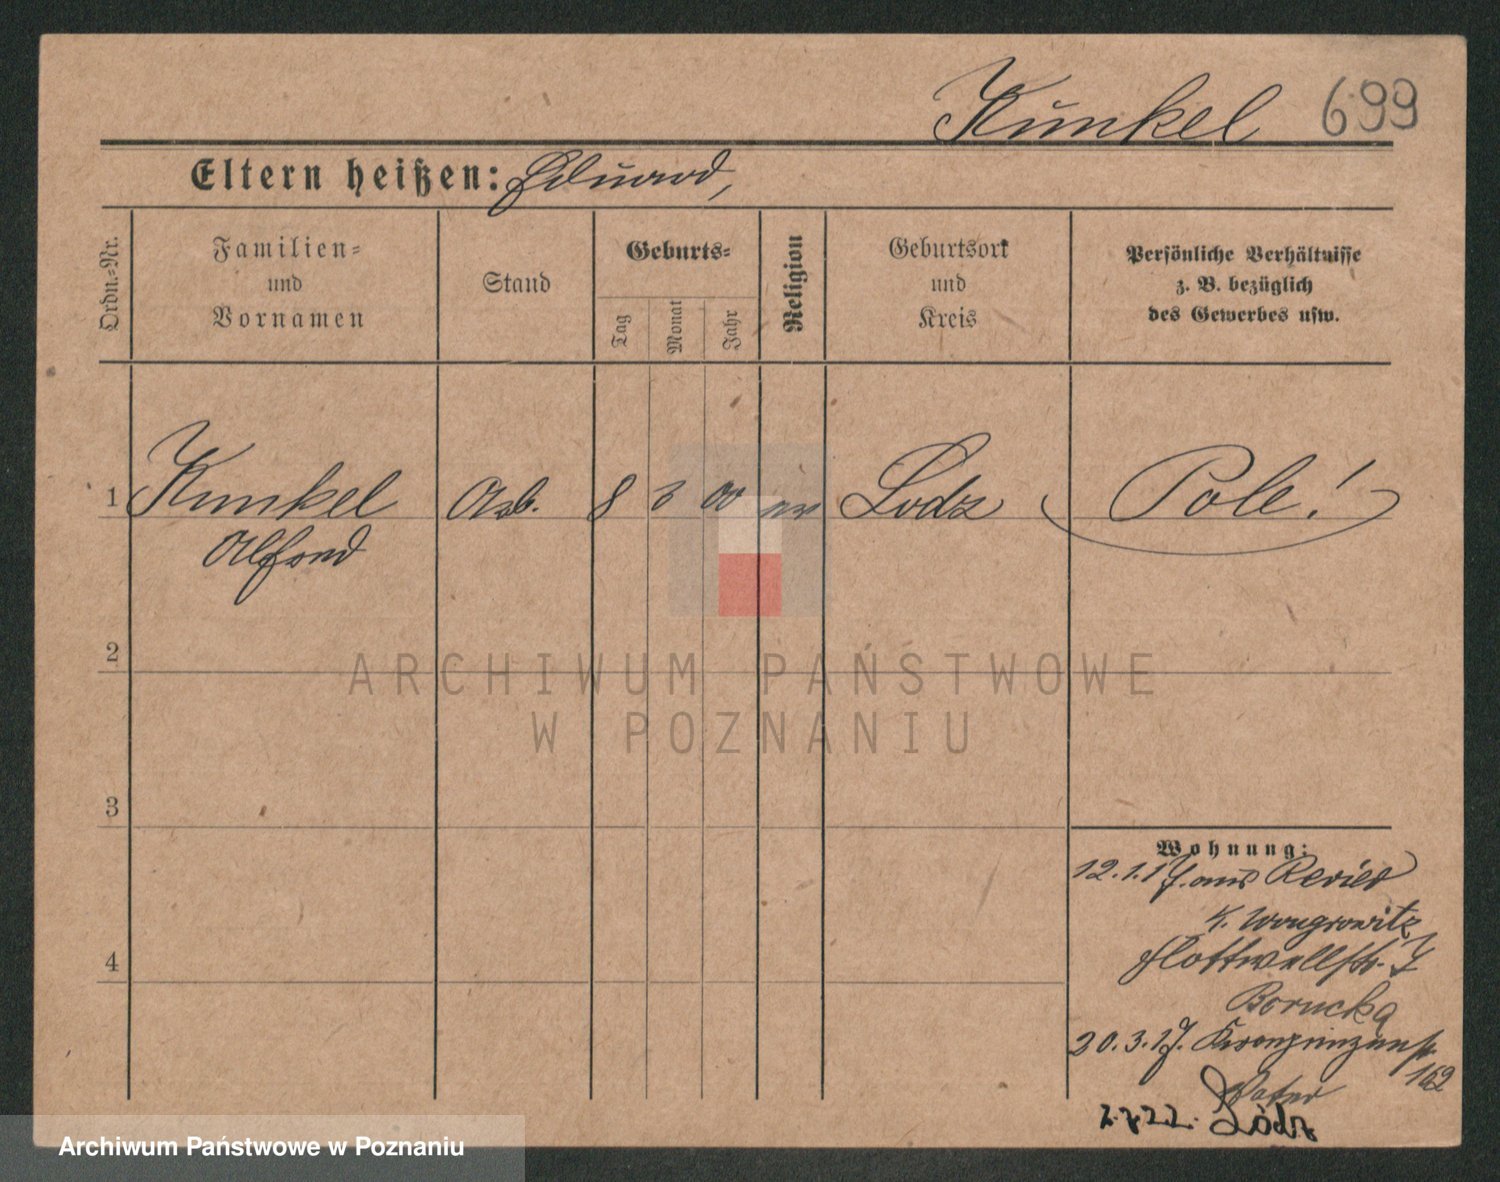 Kunkel 699
Eltern heißen: Eduard,
Ordn.-Nr.
Familien-
und
Vornamen
Stand
Geburts-
Tag
Monat
Jahr
Religion
Geburtsort
und
Kreis
Persönliche Verhältnisse
z. B. bezüglich
des Gewerbes usw.
1 Kunkel Arb. 8 3 00 ev Lodz Pole!
Alfred
2
3
4
Wohnung:
12.1.17. aus Revier
K. Wongrowitz
Flottwellstr. 7
Borucka
20.3.17. Kronprinzenstr.
162
Vater
2.7.22. Łódź
ARCHIWUM PAŃSTWOWE
W POZNANIU
Archiwum Państwowe w Poznaniu